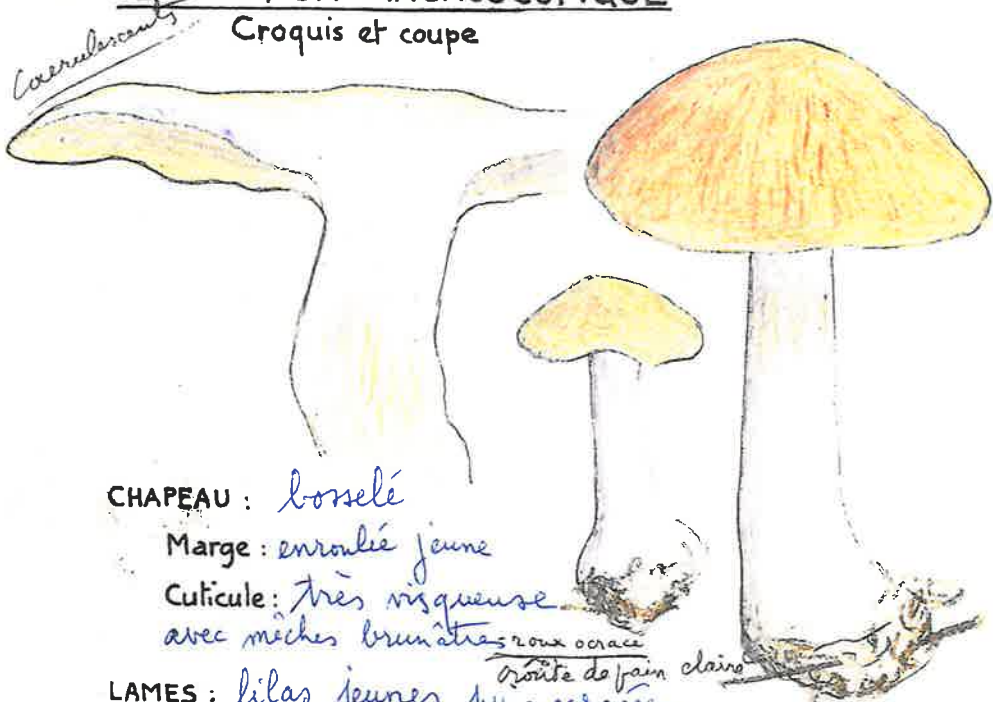 MACROSCOPIQUE
Caerulescents
Croquis et coupe
CHAPEAU : bosselé
Marge : enroulée jeune
Cuticule : très visqueuse
avec mèches brunâtres
roux ocracé
croûte de pain claire
LAMES : lilas jeunes puis